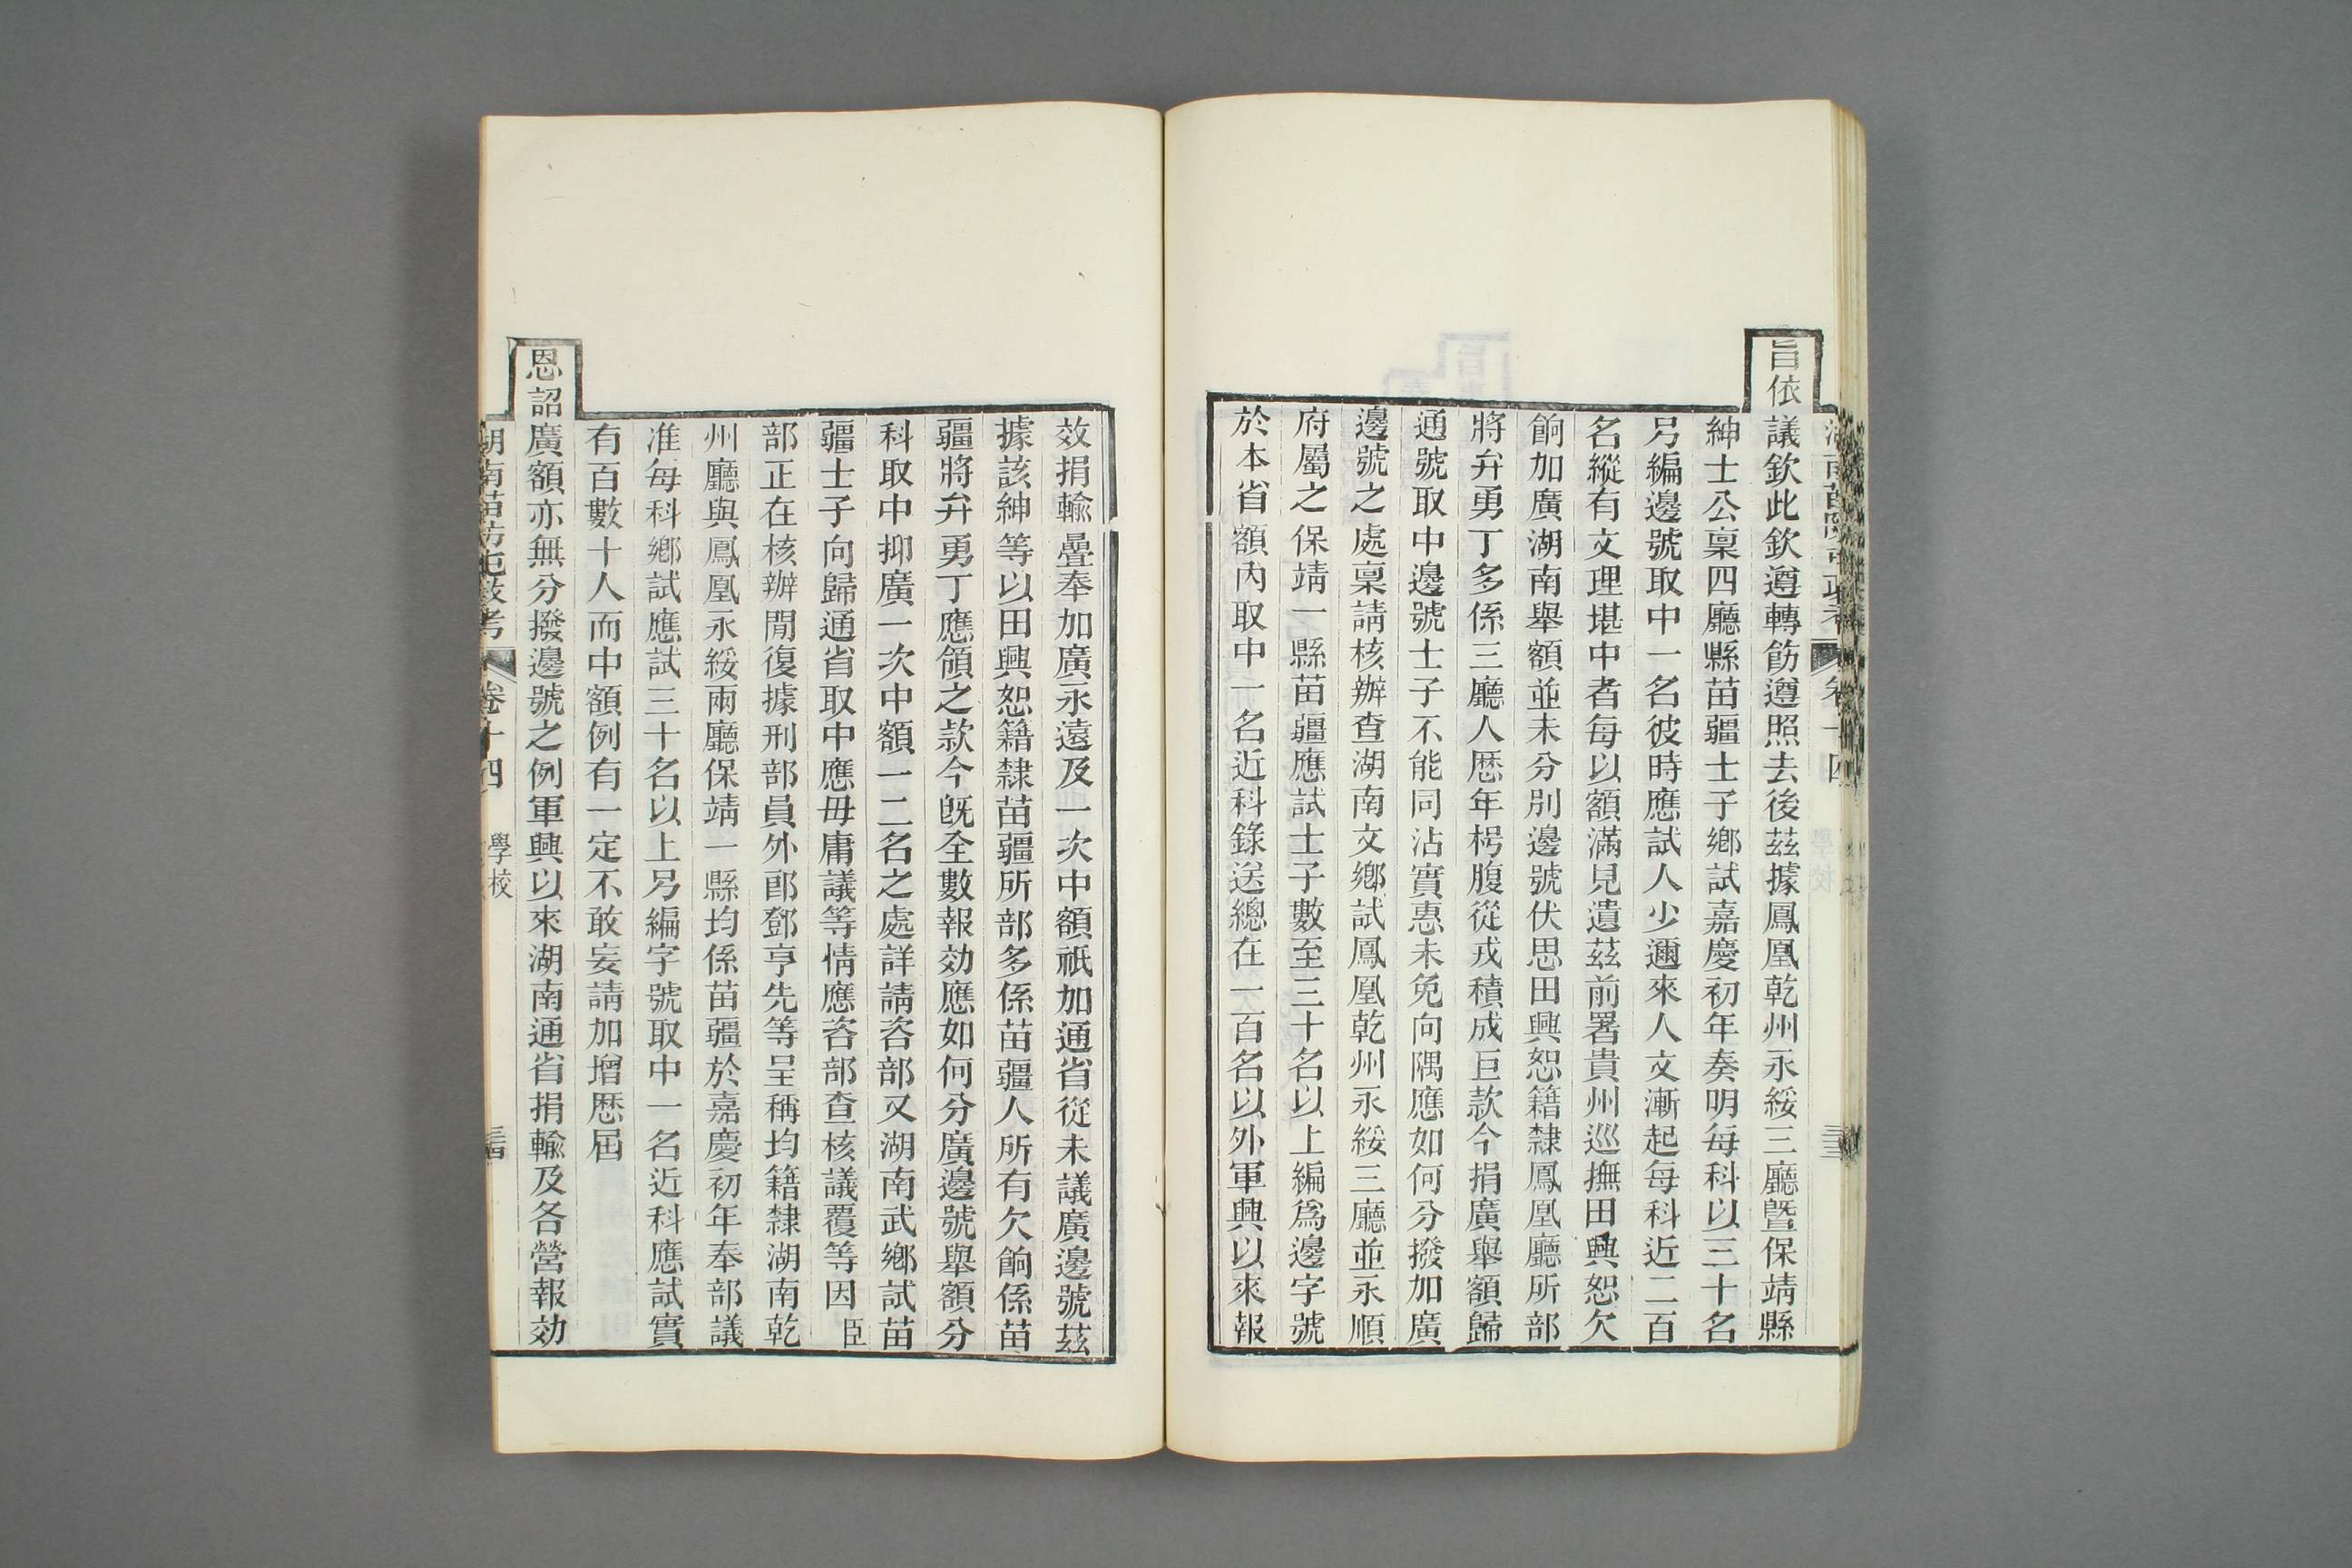 旨依議欽此欽遵轉飭遵照去後茲據鳳凰乾州永綏三廳暨保靖縣
紳士公稟四廳縣苗疆士子鄉試嘉慶初年奏明每科以三十名
另編邊號取中一名彼時應試人少邇來人文漸起每科近二百
名縱有文理堪中者每以額滿見遺茲前署貴州巡撫田興恕欠
餉加廣湖南舉額並未分別邊號伏思田興恕籍隸鳳凰廳所部
將弁勇丁多係三廳人歷年枵腹從戎積成巨款今捐廣舉額歸
通號取中邊號士子不能同沾實惠未免向隅應如何分撥加廣
邊號之處稟請核辦查湖南文鄉試鳳凰乾州永綏三廳並永順
府屬之保靖一縣苗疆應試士子數至三十名以上編為邊字號
於本省額內取中一名近科錄送總在一百名以外軍興以來報
效捐輸疊奉加廣永遠及一次中額祇加通省從未議廣邊號茲
據該紳等以田興恕籍隸苗疆所部多係苗疆人所有欠餉係苗
疆將弁勇丁應領之款今既全數報効應如何分廣邊號舉額分
科取中抑廣一次中額一二名之處詳請咨部又湖南武鄉試苗
疆士子向歸通省取中應毋庸議等情應咨部查核議覆等因臣
部正在核辦間復據刑部員外郎鄧亨先等呈稱均籍隸湖南乾
州廳與鳳凰永綏兩廳保靖一縣均係苗疆於嘉慶初年奉部議
准每科鄉試應試三十名以上另編字號取中一名近科應試實
有百數十人而中額例有一定不敢妄請加增歷屆
恩詔廣額亦無分撥邊號之例軍興以來湖南通省捐輸及各營報効
湖南苗防屯政考 卷十四 學校 三四